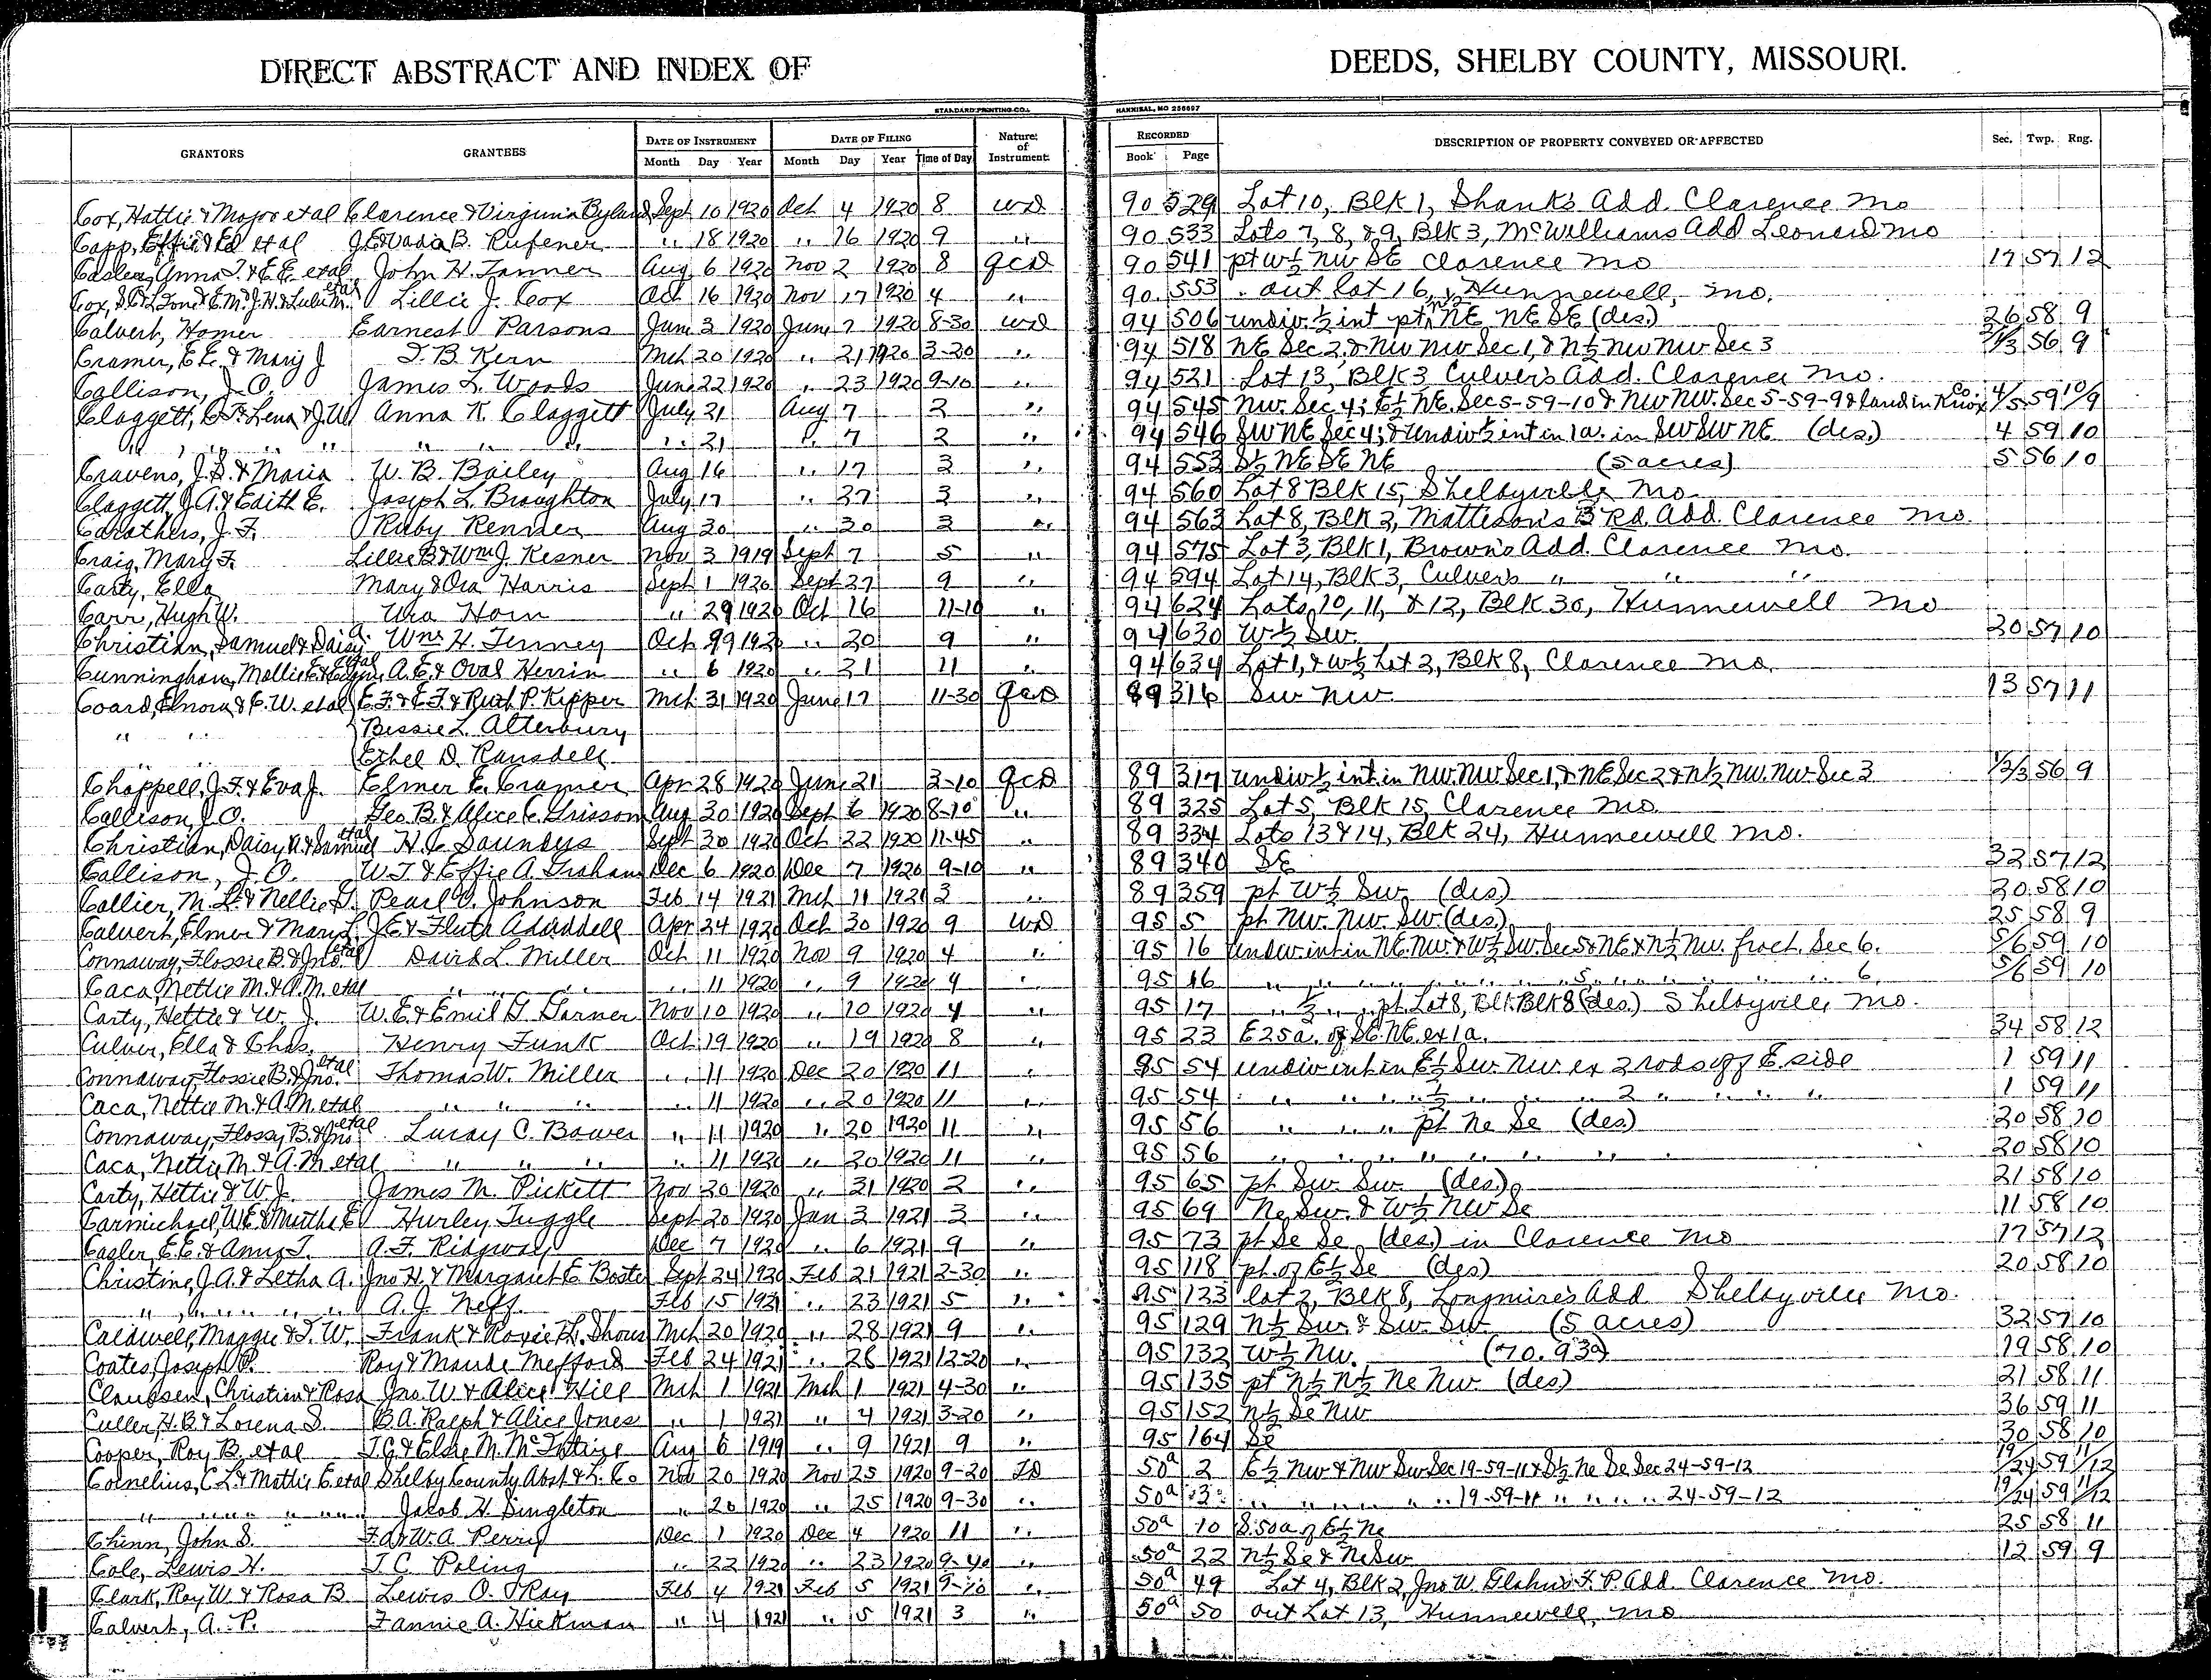 DIRECT ABSTRACT AND INDEX OF DEEDS, SHELBY COUNTY, MISSOURI.
STANDARD PRINTING CO. HANNIBAL, MO 256697
GRANTORS GRANTEES DATE OF INSTRUMENT DATE OF FILING Nature of Instrument RECORDED DESCRIPTION OF PROPERTY CONVEYED OR AFFECTED Sec. Twp. Rng.
Month Day Year Month Day Year Time of Day Book Page
Cox, Hattie & Major et al Clarence & Virginia Byland Sept 10 1920 Oct 4 1920 8 WD 90 529 Lot 10, Blk 1, Shanks Add. Clarence Mo
Capp, Effie & Ed et al B. Rufener " 18 1920 " 16 1920 9 " 90 533 Lots 7, 8, & 9, Blk 3, McWilliams Add Leonard Mo
Anna T. & E.E. et al John H. Tanner Aug 6 1920 Nov 2 1920 8 QCD 90 541 pt W½ NW SE Clarence Mo 17 57 12
Cox, Lillie J. Cox Oct 16 1920 Nov 17 1920 4 " 90 553 out lot 16, Hunnewell, Mo.
Calvert, Homer Earnest Parsons June 3 1920 June 7 1920 8-30 WD 94 506 undiv. ½ int pt NE NE SE (des.) 26 58 9
Cramer, E.E. & Mary J T. B. Kern Mch 20 1920 " 21 1920 3-20 " 94 518 NE Sec 2, & NW NW Sec 1, & N½ NW NW Sec 3 56 9
Callison, J. O. James L. Woods June 22 1920 " 23 1920 9-10 " 94 521 Lot 13, Blk 3 Culver's Add. Clarence Mo.
Claggett, Lena & J.W. Anna K. Claggett July 21 Aug 7 2 " 94 545 NW. Sec 4; E½ NE. Sec 5-59-10 & NW NW. Sec 5-59-9 & land in Knox Co. 4/5 59 10/9
" " " " " " " " 21 " 7 2 " 94 546 SW NE Sec 4; & undiv ½ int in 1a. in SW SW NE (des.) 4 59 10
Cravens, J.S. & Maria W. B. Bailey Aug 16 " 17 3 " 94 553 S½ NE SE NE (5 acres) 5 56 10
Claggett, J.A. & Edith E. Joseph L. Broughton July 17 " 27 3 " 94 560 Lot 8 Blk 15, Shelbyville Mo.
Carothers, J. F. Ruby Renner Aug 30 " 30 3 " 94 563 Lot 8, Blk 2, Mattison's 3 Rd. Add. Clarence Mo.
Craig, Mary F. Lillie B & Wm J. Kesner Nov 3 1919 Sept 7 5 " 94 575 Lot 3, Blk 1, Brown's Add. Clarence Mo.
Carty, Ella Mary & Ora Harris Sept 1 1920 Sept 27 9 " 94 594 Lot 14, Blk 3, Culver's " " "
Carr, Hugh W. Ura Horn " 29 1920 Oct 16 11-10 " 94 624 Lots 10, 11, & 12, Blk 30, Hunnewell Mo
Christian, Samuel & Daisy A. Wm. H. Tenney Oct 192 " 20 9 " 94 630 W½ SW. 20 57 10
Cunningham, Mollie E. et al A. E. & Oval Herrin " 6 1920 " 21 11 " 94 634 Lot 1, & W½ Lot 2, Blk 8, Clarence Mo.
Coard, Elnora & C.W. et al E.F. & E.F. & Ruth P. Kipper Mch 31 1920 June 17 11-30 QCD 89 316 SW NW 13 57 11
" " Bessie L. Atterbury
" " Ethel D. Ransdell
Chappell, J.F. & Eva J. Elmer E. Cramer Apr 28 1920 June 21 3-10 QCD 89 317 undiv ½ int in NW. NW Sec 1, & NE Sec 2 & N½ NW. NW. Sec 3 1/2/3 56 9
Callison, J.O. Geo. B. & Alice C. Grissom Aug 30 1920 Sept 6 1920 8-10 " 89 325 Lot 5, Blk 15, Clarence Mo.
Christian, Daisy A. & Samuel et al H. C. Saunders Sept 30 1920 Oct 22 1920 11-45 " 89 334 Lots 13 & 14, Blk 24, Hunnewell Mo.
Callison, J. O. W.T. & Effie A. Graham Dec 6 1920 Dec 7 1920 9-10 " 89 340 SE 32 57 12
Collier, M. L. & Nellie G. Pearl V. Johnson Feb 14 1921 Mch 11 1921 3 " 89 359 pt W½ SW. (des) 30 58 10
Calvert, Elmer & Mary L. J.E. & Fluta Aduddell Apr 24 1920 Oct 30 1920 9 WD 95 5 pt NW. NW. SW (des) 25 58 9
Connaway, Flossie B. & Jno. et al David L. Miller Oct 11 1920 Nov 9 1920 4 " 95 16 undiv int in NE. NW. & W½ SW. Sec 5 & NE & N½ NW. fract. Sec 6. 5/6 59 10
Caca, Nettie M. & A.M. et al " " " " 11 1920 " 9 1920 4 " 95 16 " " " 5 " " " 6 5/6 59 10
Carty, Hettie & W. J. W.E. & Emil G. Garner Nov 10 1920 " 10 1920 4 " 95 17 " ½ " pt Lot 8, Blk. Blk 8 (des.) Shelbyville, Mo.
Culver, Ella & Chas. Henry Funk Oct 19 1920 " 19 1920 8 " 95 23 E 25a. of SE. NE. ex 1a. 34 58 12
Connaway, Flossie B. & Jno. et al Thomas W. Miller " 11 1920 Dec 20 1920 11 " 95 54 undiv int in E½ SW. NW. ex 2 rods off E side 1 59 11
Caca, Nettie M. & A.M et al " " " " 11 1920 " 20 1920 11 " 95 54 " " " ½ " " 2 " " " " 1 59 11
Connaway, Flossy B. & Jno et al Luray C. Bower " 11 1920 " 20 1920 11 " 95 56 " " " pt Ne Se (des) 20 58 10
Caca, Nettie M. & A. M. et al " " " " 11 1920 " 20 1920 11 " 95 56 " " " " " " " 20 58 10
Carty, Hettie & W.J. James M. Pickett Nov 20 1920 " 31 1920 2 " 95 65 pt Sw. Sw. (des) 21 58 10
Carmichael, W.E. & Murtha E Hurley Tuggle Sept 20 1920 Jan 3 1921 3 " 95 69 Ne Sw. & W½ NW Se 11 58 10
Casler, E.E. & Anna T. A. F. Ridgway Dec 7 1920 " 6 1921 9 " 95 73 pt Se Se (des) in Clarence Mo 17 57 12
Christine, J.A. & Letha A. Jno H. & Margaret E. Boster Sept 24 1920 Feb 21 1921 2-30 " 95 118 pt of E½ Se (des) 20 58 10
" " " " " A. J. Neff Feb 15 1921 " 23 1921 5 " 95 123 lot 2, Blk 8, Longmire's Add Shelbyville Mo.
Caldwell, Maggie & T. W. Frank & Roxie H. Shous Mch 20 1920 " 28 1921 9 " 95 129 N½ Sw. & Sw. Sw (5 acres) 32 57 10
Coates, Joseph P. Roy & Maude Mefford Feb 24 1921 " 28 1921 12-20 " 95 132 W½ NW. (70.93a) 19 58 10
Claussen, Christian & Rosa Jno. W. & Alice Hill Mch 1 1921 Mch 1 1921 4-30 " 95 135 pt N½ N½ Ne Nw. (des) 21 58 11
Culler, H. B. & Lorena S. B.A. Ralph & Alice Jones " 1 1921 " 4 1921 3-20 " 95 152 N½ Se NW 36 59 11
Cooper, Roy B. et al T.G. & Elsie M. McIntire Aug 6 1919 " 9 1921 9 " 95 164 Se 30 58 10
Cornelius, C.L. & Mattie E et al Shelby County Abst & L. Co Nov 20 1920 Nov 25 1920 9-20 TD 50a 2 E½ NW & NW SW Sec 19-59-11 & S½ Ne Se Sec 24-59-12 19/24 59 11/12
" " " " Jacob H. Singleton " 20 1920 " 25 1920 9-30 " 50a 3 " " " " 19-59-11 " " " 24-59-12 19/24 59 11/12
Chinn, John S. F.A. & W.A. Perry Dec 1 1920 Dec 4 1920 11 " 50a 10 S. 50a of E½ Ne 25 58 11
Cole, Lewis H. T. C. Poling " 22 1920 " 23 1920 9-40 " 50a 22 N½ Se & Ne Sw 12 59 9
Clark, Roy W. & Rosa B. Lewis O. Ray Feb 4 1921 Feb 5 1921 " 50a 49 Lot 4, Blk 2, Jno W. Glahn's F. P. Add. Clarence Mo.
Calvert, A. P. Fannie A. Hickman " 4 1921 " 5 1921 3 " 50a 50 out Lot 13, Hunnewell, Mo